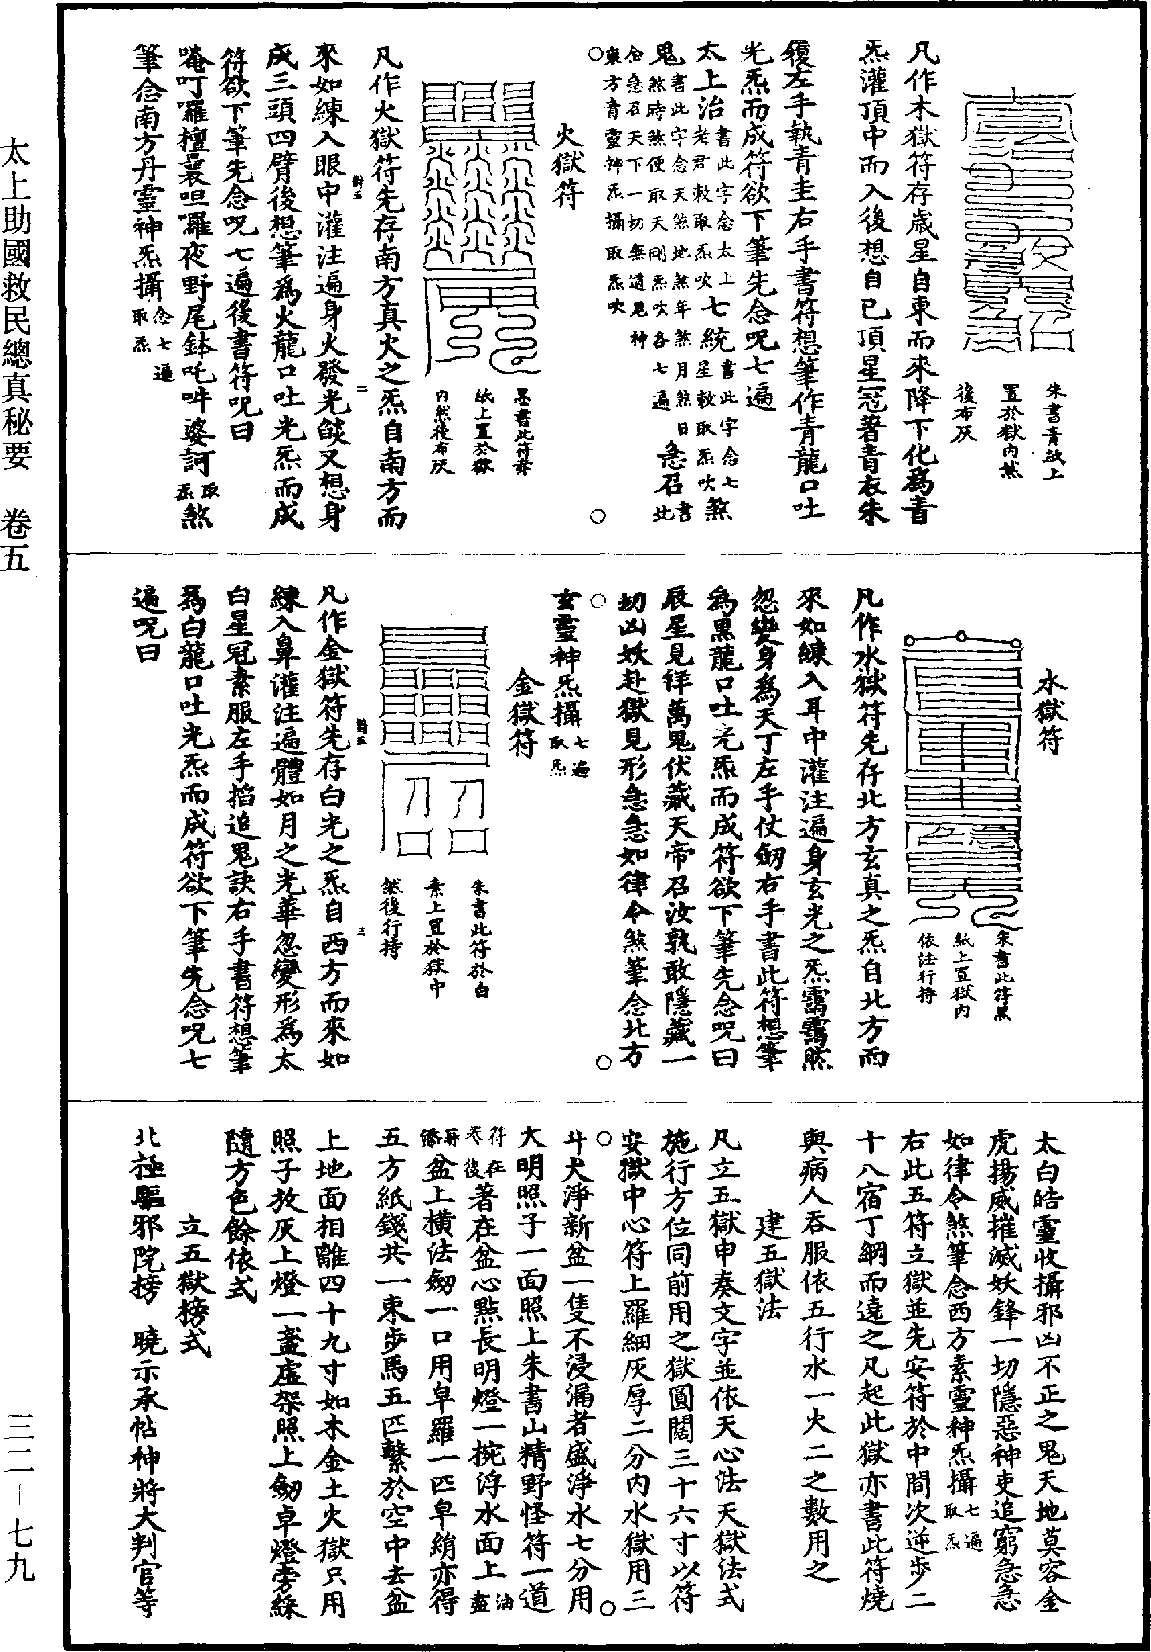 太上助國救民總真秘要　卷五
三二－七九
朱書青紙上
置於獄內然
後布灰
凡作木獄符存歲星自東而來降下化為青
炁灌頂中而入後想自己頂星冠著青衣朱
履左手執青圭右手書符想筆作青龍口吐
光炁而成符欲下筆先念呪七遍
太上治書此字念太上老君敕取炁吹七統書此字念七星敕取炁吹煞
鬼書此字念天煞地煞年煞月煞日煞時煞便取天剛炁吹各七遍急召書此
念急召天下一切無道鬼神
東方青靈神炁攝取炁吹
火獄符
墨書此符緋
紙上置於獄
內然後布灰
凡作火獄符先存南方真火之炁自南方而
來如練入眼中灌注遍身火發光燄又想身
成三頭四臂後想筆為火龍口吐光炁而成
符欲下筆先念呪七遍後書符呪曰
唵吖囉檀曩呾囉夜野尾鉢吒吽婆訶取炁煞
筆念南方丹靈神炁攝念七遍取炁
水獄符
朱書此符黑
紙上置獄內
依法行持
凡作水獄符先存北方玄真之炁自北方而
來如練入耳中灌注遍身玄光之炁靄靄然
忽變身為天丁左手仗劒右手書此符想筆
為黑龍口吐光炁而成符欲下筆先念呪曰
辰星見徉萬鬼伏藏天帝召汝孰敢隱藏一
切凶妖赴獄見形急急如律令煞筆念北方
玄靈神炁攝七遍取炁
金獄符
朱書此符於白
素上置於獄中
然後行持
凡作金獄符先存白光之炁自西方而來如
練入鼻灌注遍體如月之光華忽變形為太
白星冠素服左手掐追鬼訣右手書符想筆
為白龍口吐光炁而成符欲下筆先念呪七
遍呪曰
太白皓靈收攝邪凶不正之鬼天地莫容金
虎揚威摧滅妖鋒一切隱惡神吏追窮急急
如律令煞筆念西方素靈神炁攝七遍取炁
右此五符立獄並先安符於中間次逆步二
十八宿丁綱而遶之凡起此獄亦書此符燒
與病人吞服依五行水一火二之數用之
建五獄法
凡立五獄申奏文字並依天心法天獄法式
施行方位同前用之獄圓闊三十六寸以符
安獄中心符上羅細灰厚二分內水獄用三
斗大淨新盆一隻不浸漏者盛淨水七分用
大明照子一面照上朱書山精野怪符一道
符在卷後著在盆心點長明燈一椀浮水面上油盞
盆上橫法劒一口用皁羅一匹皁絹亦得
五方紙錢共一束步馬五匹繫於空中去盆
上地面相離四十九寸如木金土火獄只用
照子放灰上燈一盞虛架照上劒卓燈旁綵
隨方色餘依式
立五獄榜式
北極驅邪院榜　曉示承帖神將大判官等